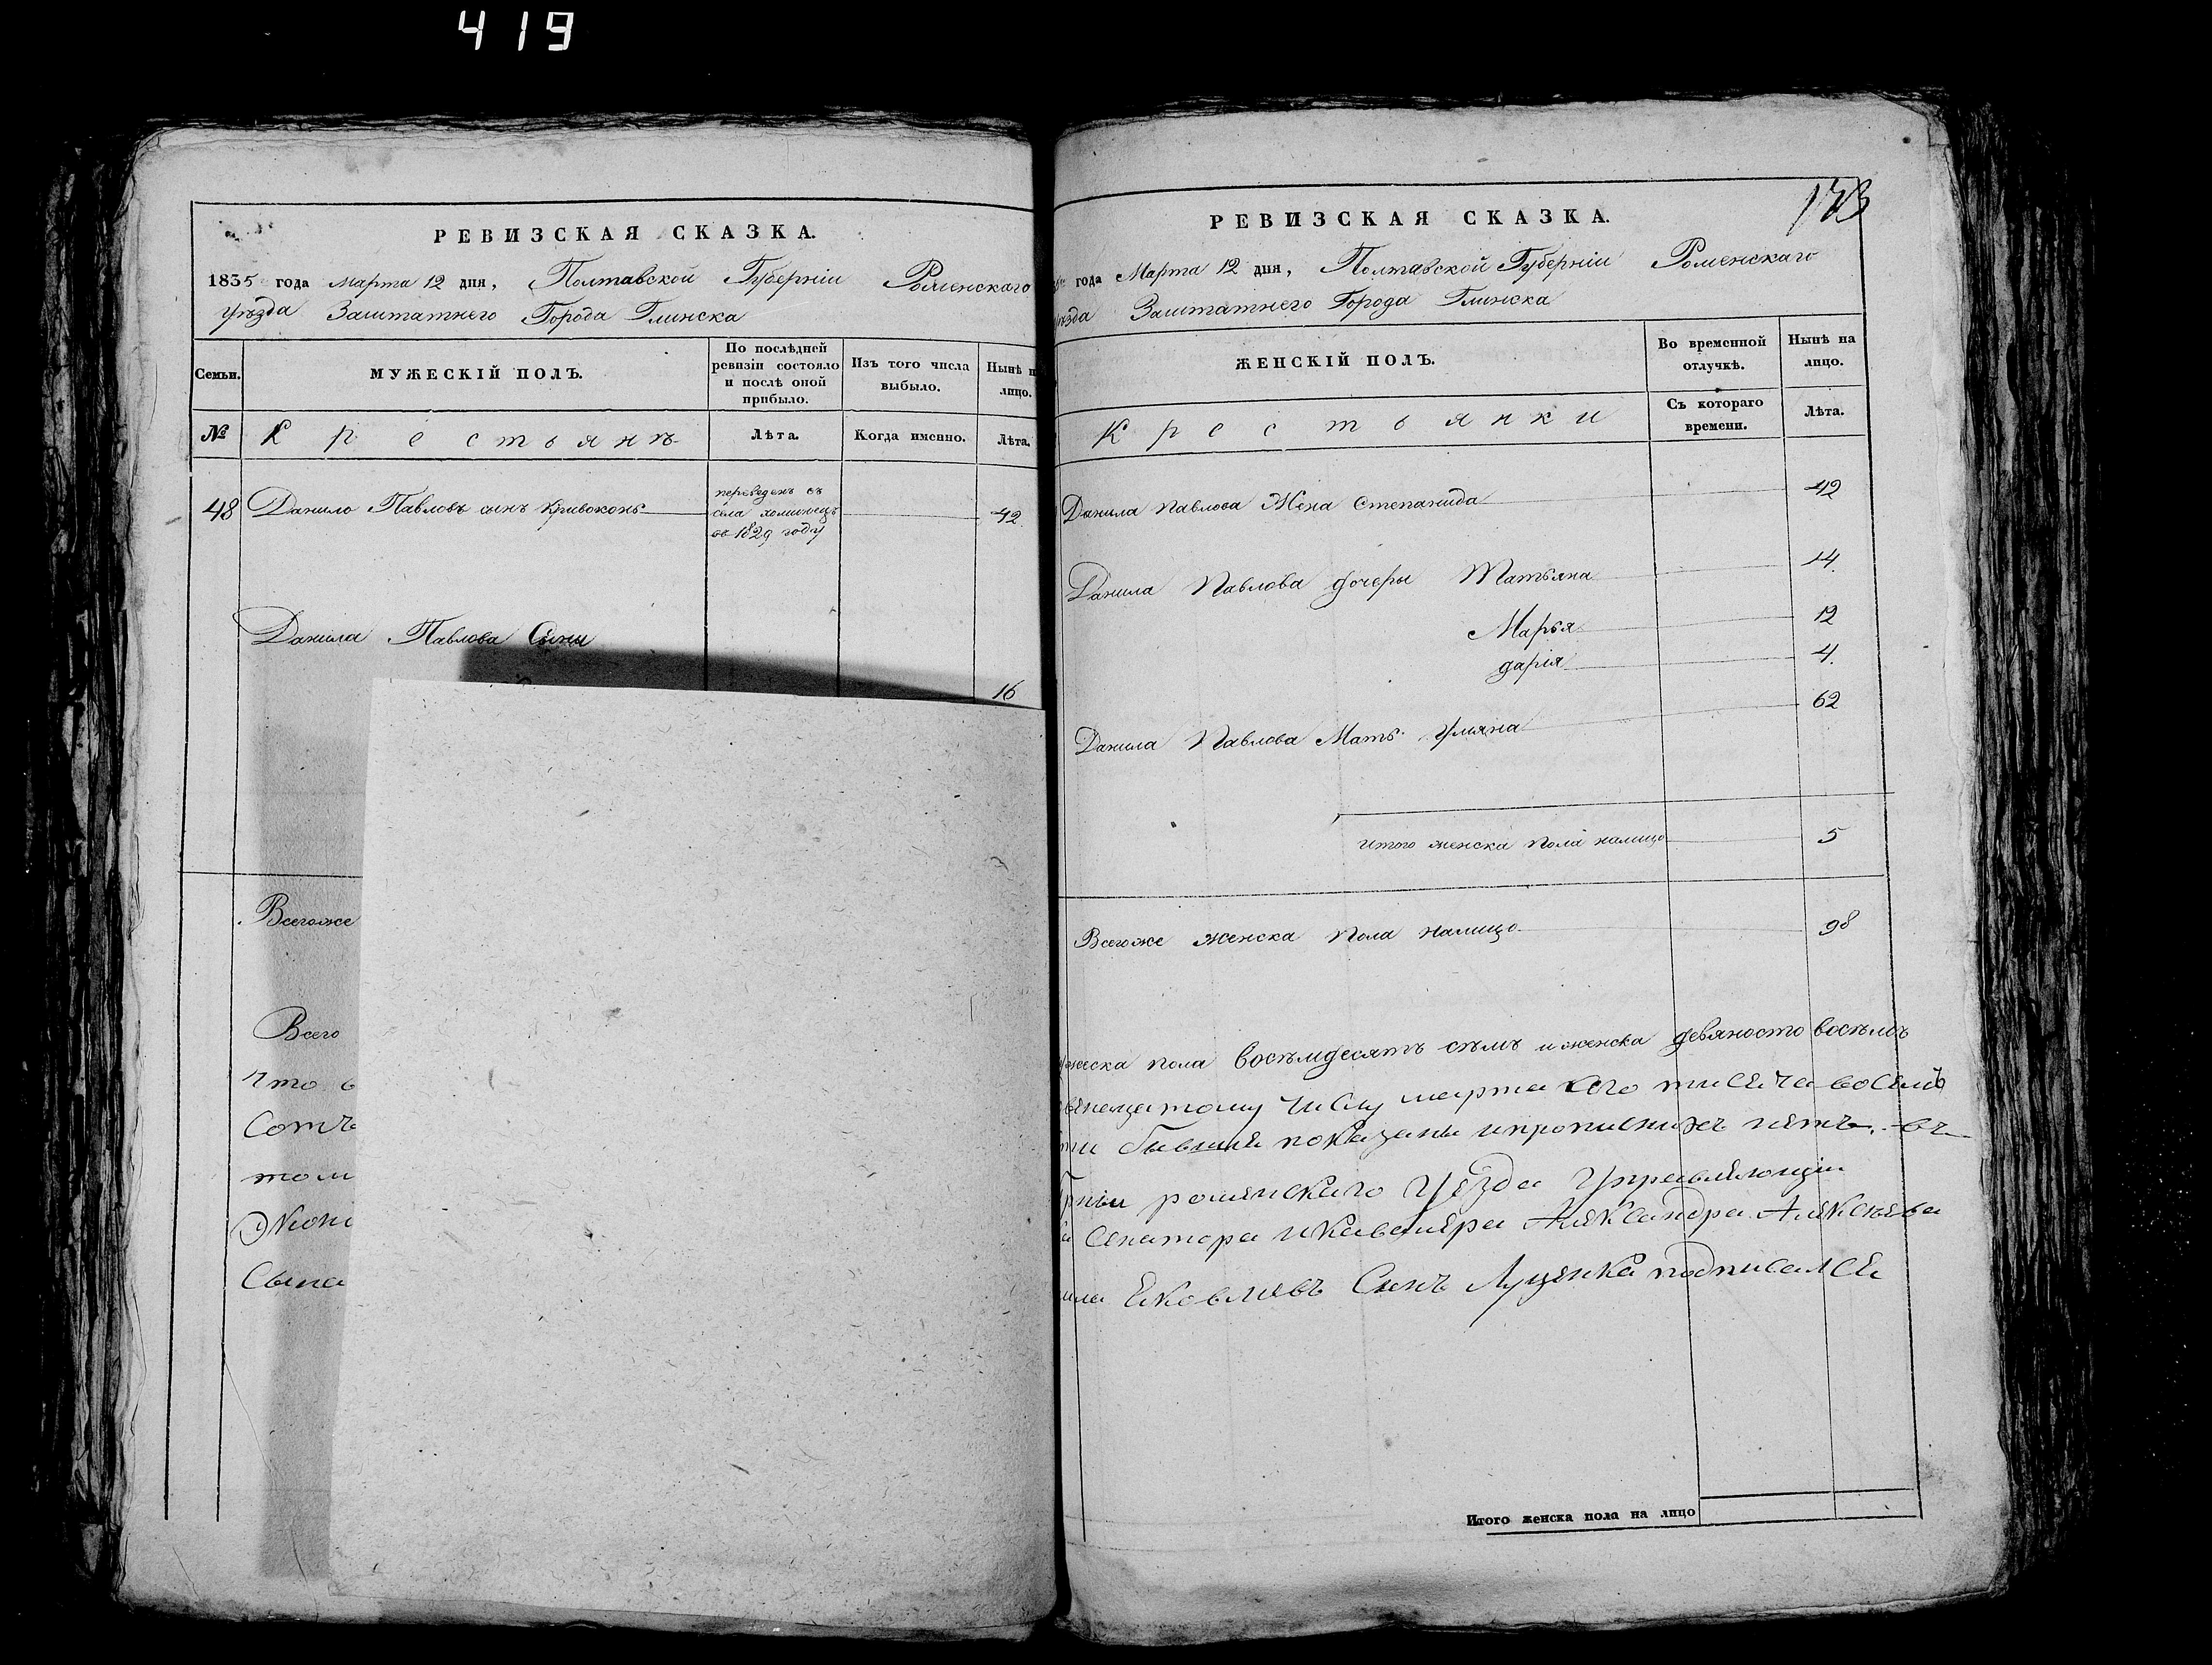 419
РЕВИЗСКАЯ СКАЗКА.
1835 года Марта 12 дня, Полтавской Губерніи Роменскаго
уѣзда Заштатнего Города Глинска
Семьи.
МУЖЕСКІЙ ПОЛЪ.
По послѣдней
ревизіи состояло
и послѣ оной
прибыло.
Изъ того числа
выбыло.
Нынѣ н
лицо.
№
Крестьянъ
Лѣта.
Когда именно.
Лѣта.
48 Данило Павловъ сынъ Кривоконь
переведенъ съ
села хоминецъ
въ 1829 году
42
Данила Павлова Сыны
16
Всегоже
Всего
что
Сотъ
том
Сына
173
РЕВИЗСКАЯ СКАЗКА.
года Марта 12 дня, Полтавской Губерніи Роменскаго
ѣзда Заштатнего Города Глинска
ЖЕНСКІЙ ПОЛЪ.
Во временной
отлучкѣ.
Нынѣ на
лицо.
Крестьянки
Съ котораго
времени.
Лѣта.
Данила Павлова Жена Степанида 42
Данила Павлова дочеры Татьяна 14.
Марья 12
дарія 4.
Данила Павлова Мать Уляна 62
итого женска пола налицо 5
Всегоже женска пола налицо 98
жеска пола восѣмдесятъ сѣмъ и женска девяносто восѣмъ
венацатому числу марта сего тисеча восемъ
ти бывшия показани ипрописнихъ нетъ. въ
рніи роменскаго уезда Управляющіи
Сенатора икавалера Александра Алексѣева
ила Яковлевъ Синъ Луценка подписалсе
Итого женска пола на лицо